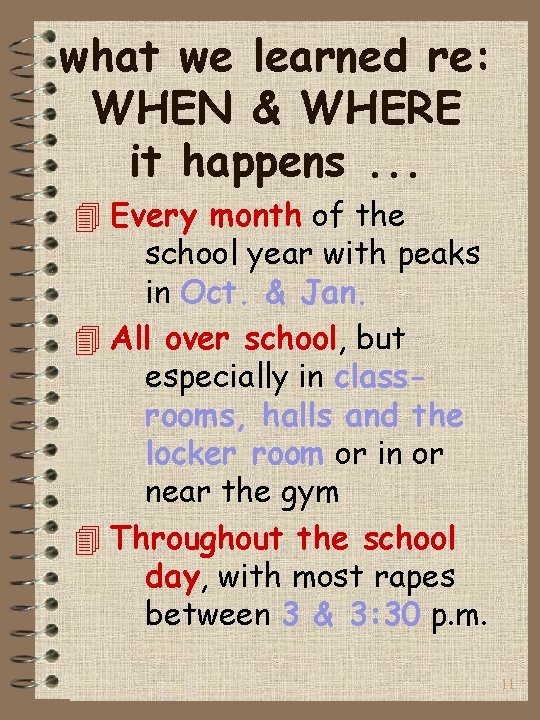 what we learned re:
WHEN & WHERE
it happens ...
Every month of the
school year with peaks
in Oct. & Jan.
All over school, but
especially in class-
rooms, halls and the
locker room or in or
near the gym
Throughout the school
day, with most rapes
between 3 & 3:30 p.m.
11